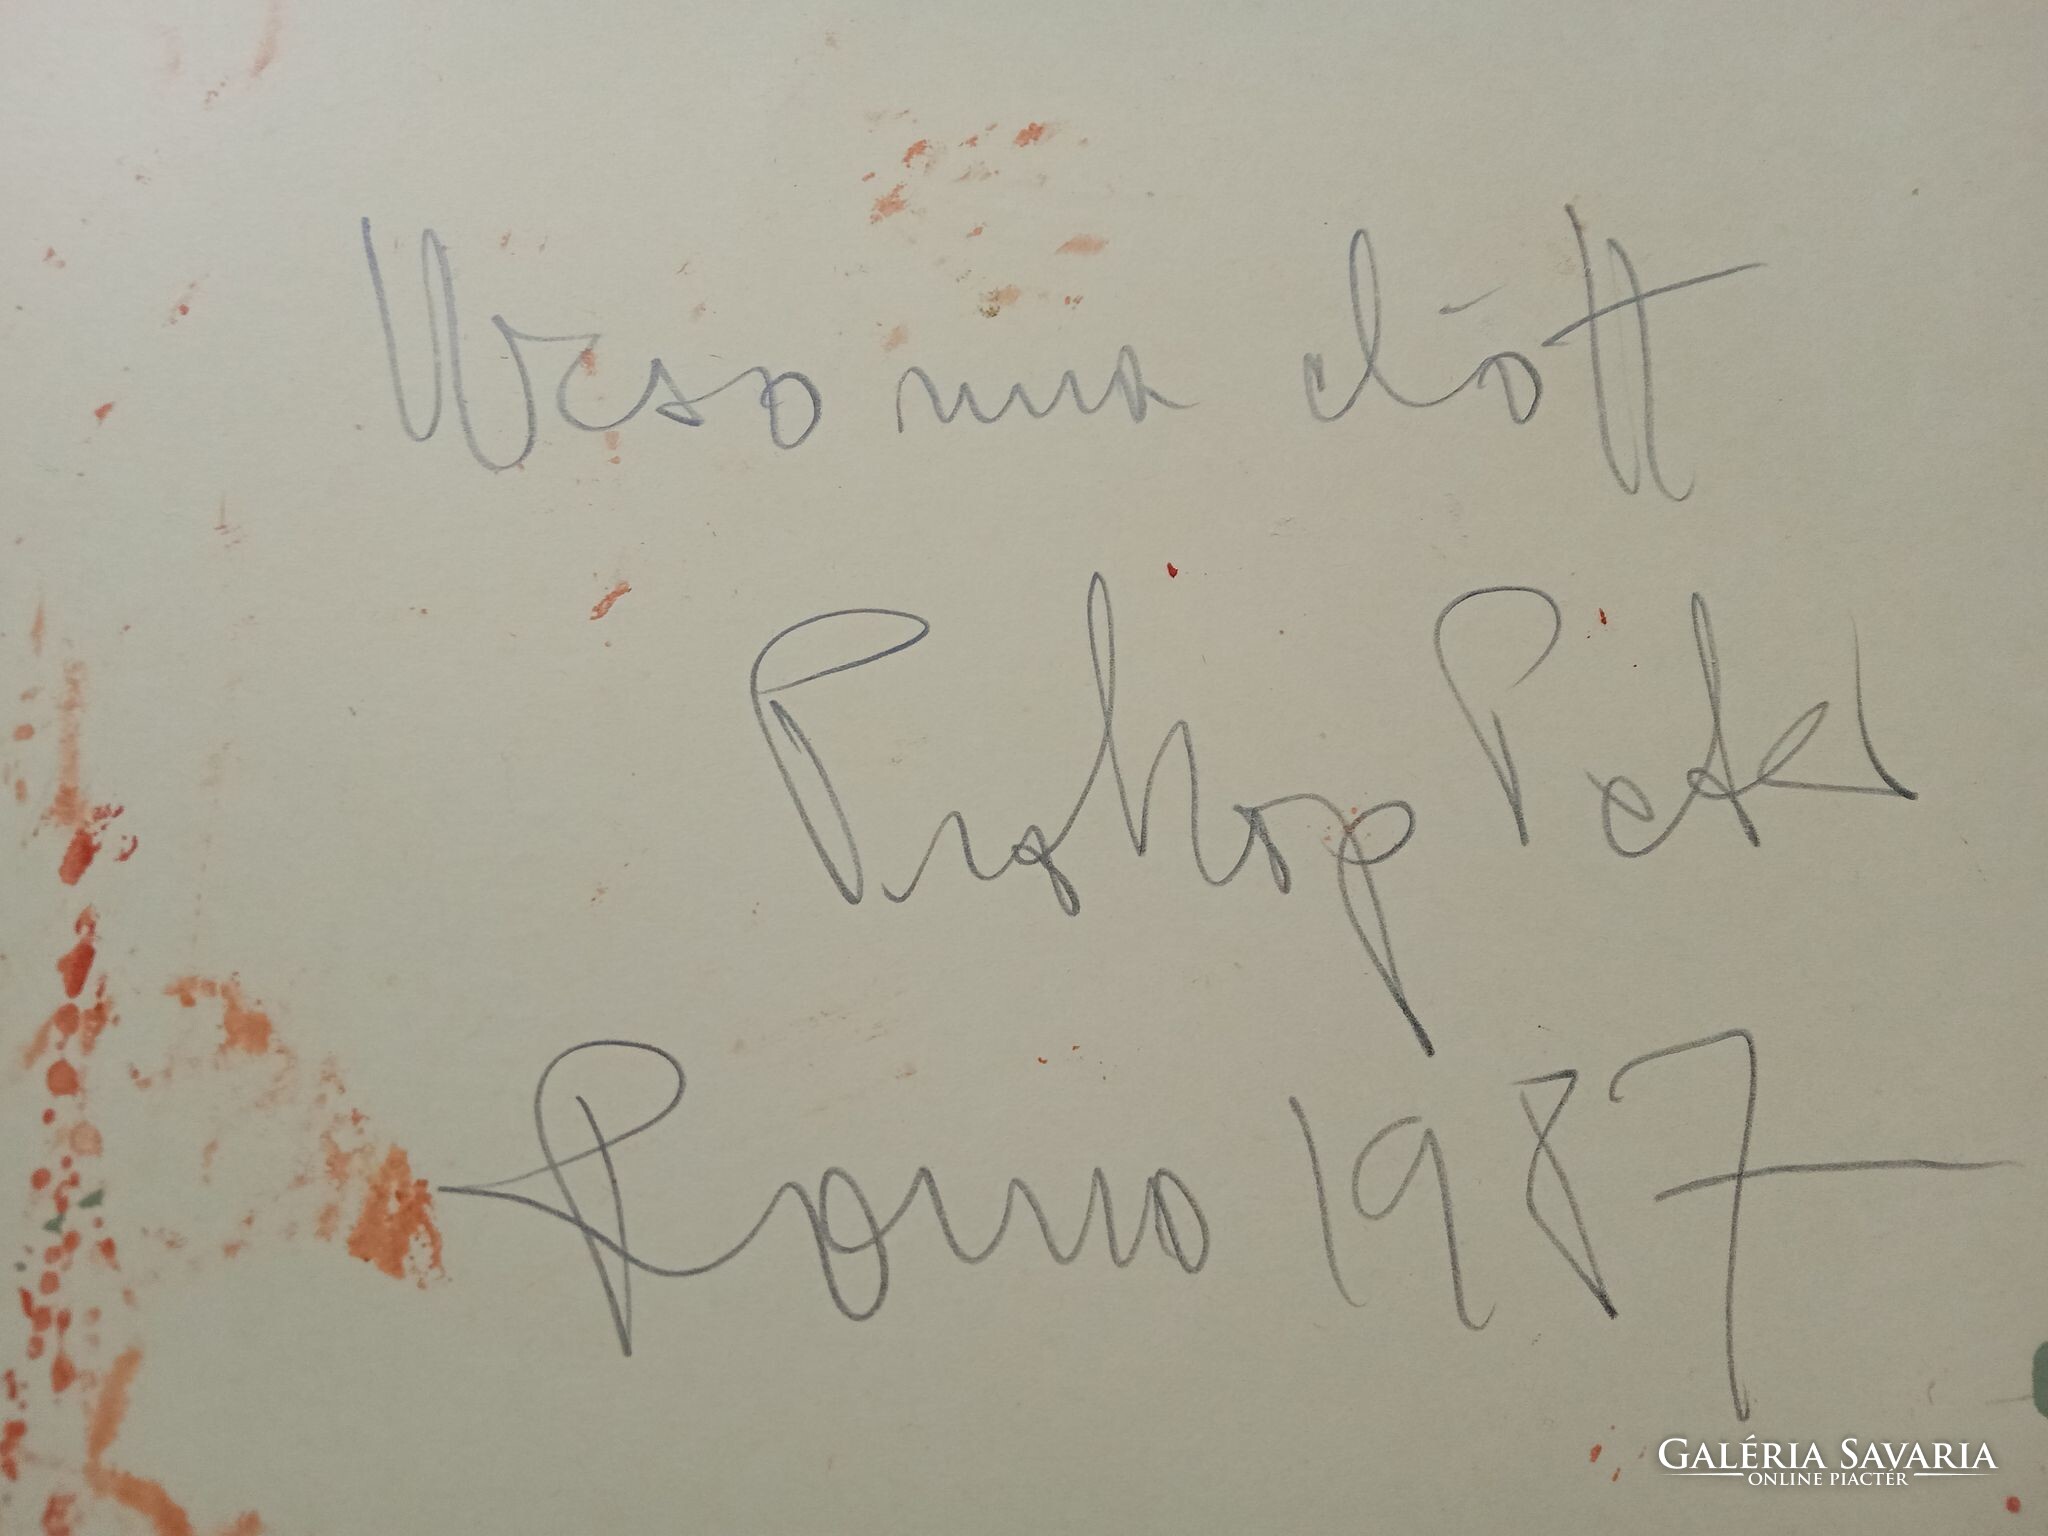 Vacsora előtt
Prokop Péter
Roma 1987
GALÉRIA SAVARIA
ONLINE PIACTÉR